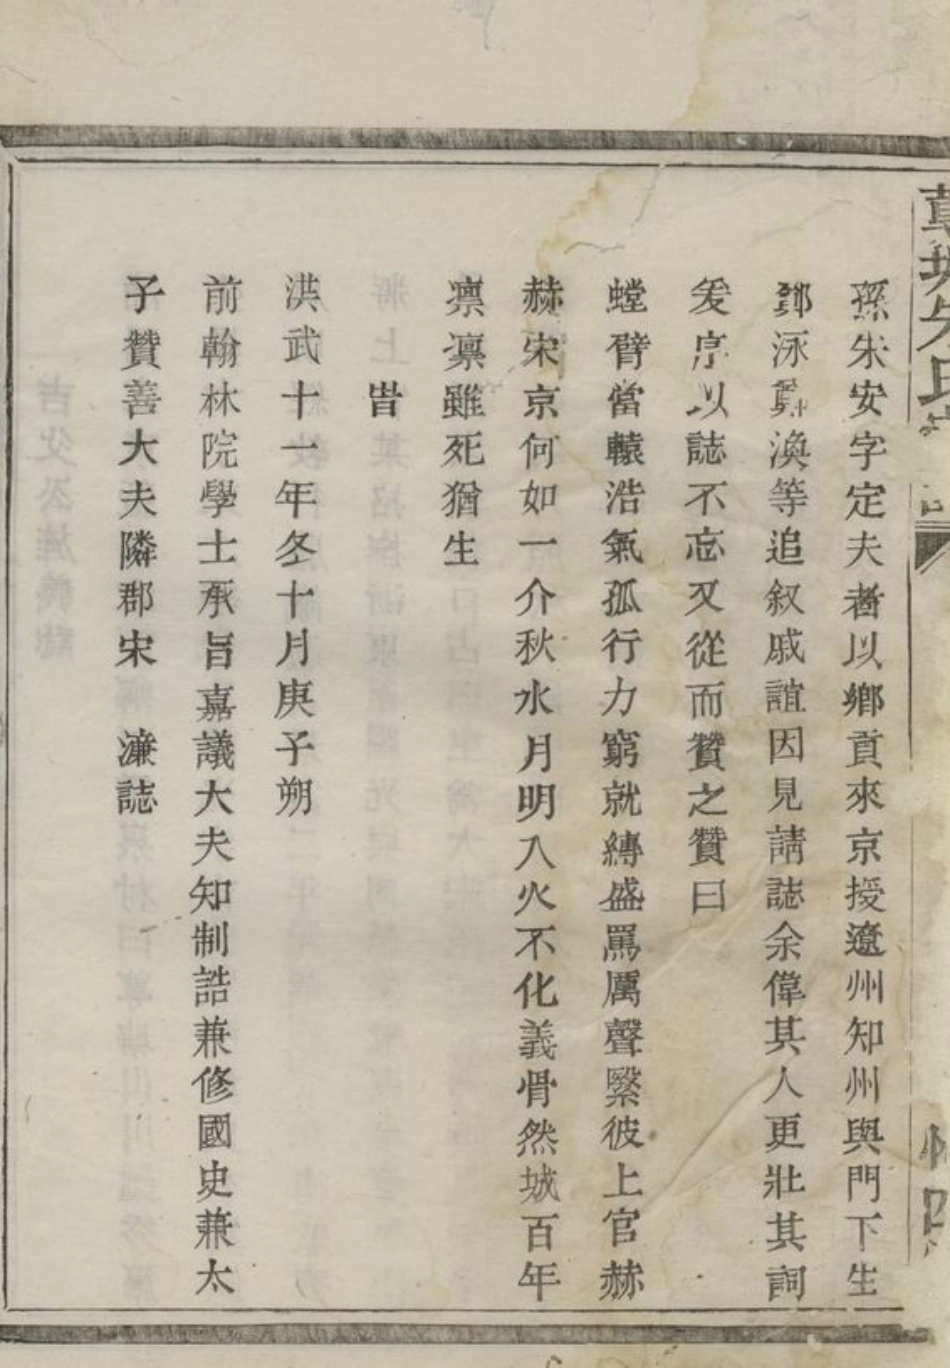 孫朱安字定夫者以鄉貢來京授遼州知州與門下生
鄭泳鄭渙等追叙戚誼因見請誌余偉其人更壯其詞
爰序以誌不忘又從而贊之贊曰
螳臂當轅浩氣孤行力窮就縛盛罵厲聲緊彼上官赫
赫宋京何如一介秋水月明入火不化義骨然城百年
凜凜雖死猶生
旹
洪武十一年冬十月庚子朔
前翰林院學士承旨嘉議大夫知制誥兼修國史兼太
子贊善大夫隣郡宋 濂誌